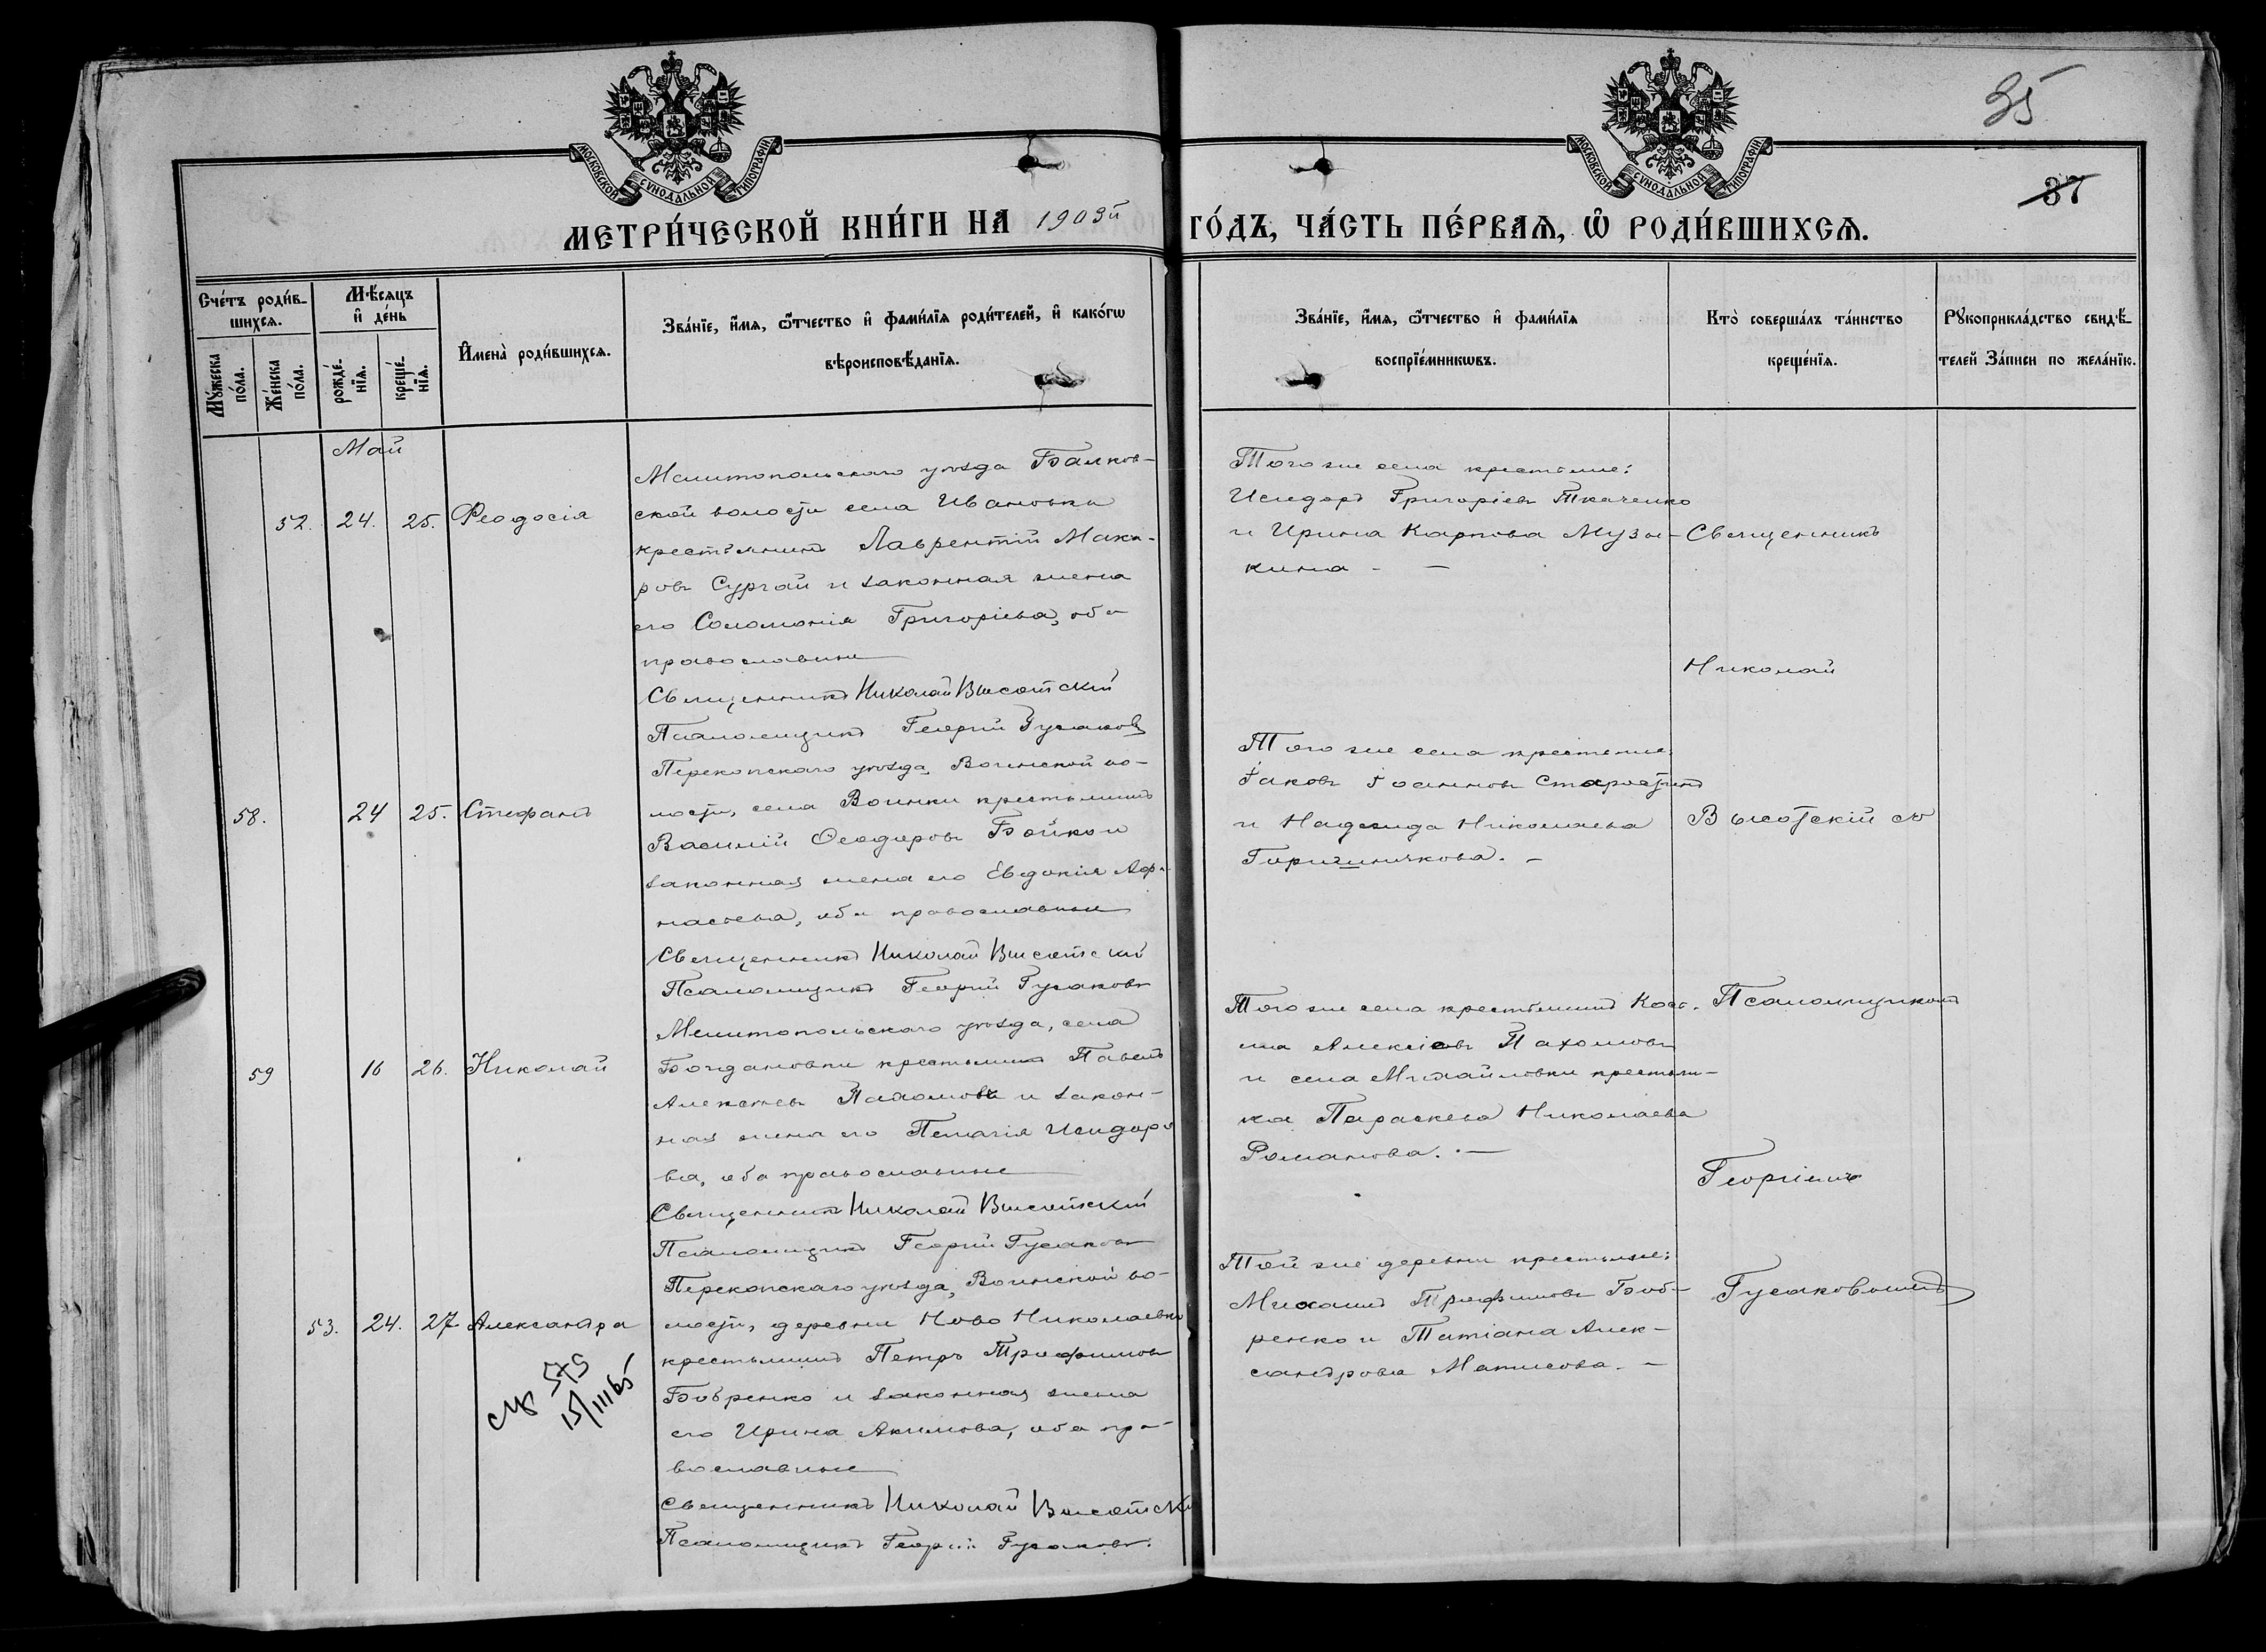 35
37
МОСКОВСКОЙ СУНОДАЛЬНОЙ ТИПОГРАФІИ
МОСКОВСКОЙ СУНОДАЛЬНОЙ ТИПОГРАФІИ
МЕТРИ́ЧЕСКОЙ КНИ́ГИ НА 1903й ГО́ДЪ, ЧА́СТЬ ПЕ́РВАЯ, Ѡ РОДИ́ВШИХСЯ.
Сче́тъ роди́в-
шихся.
Мꙋ́жеска по́ла.
Же́нска по́ла.
Мѣ́сяцъ и де́нь
рожде́-
нїя.
креще́-
нїя.
Имена̀ роди́вшихся.
Зва́нїе, и́мя, ѻ́тчество и фами́лїя роди́телей, и како́гѡ
вѣроисповѣ́данїя.
Зва́нїе, и́мя, ѻ́тчество и фами́лїя
воспрїе́мникѡвъ.
Кто̀ соверша́лъ та́инство
креще́нїя.
Рꙋкоприкла́дство свидѣ́-
телей За́писи по жела́нїю.
Май
52. 24. 25. Феодосія
Мелитопольскаго уѣзда Балков-
ской волости села Ивановки
крестьянинъ Лаврентій Мака-
ровъ Сургай и законная жена
его Соломонія Григоріева, оба
православные
Священникъ Николай Высотскій
Псаломщикъ Георгій Гусаковъ
Того же села крестьяне:
Исидоръ Григоріевъ Ткаченко
и Ирина Карпова Музы-
кина - -
58. 24 25. Стефанъ
Перекопскаго уѣзда, Воинской во-
лости, села Воинки крестьянинъ
Василій Ѳеодоровъ Бойко и
законная жена его Евдокія Афа-
насьева, оба православные
Священникъ Николай Высотскій
Псаломщикъ Георгій Гусаковъ
Того же села крестьяне:
Іаковъ Іоанновъ
и Надежда Николаева
59 16 26. Николай
Мелитопольскаго уѣзда, села
Богдановки крестьянинъ Павелъ
Алексѣевъ Пахомовъ и закон-
ная жена его Пелагія Исидоро
ва, оба православные
Священникъ Николай Высотскій
Псаломщикъ Георгій Гусаковъ
Того же села крестьянинъ Кось-
ма Алексіевъ Пахомовъ
и села Михайловки крестьян-
ка Параскева Николаева
Романова. -
53. 24. 27 Александра
Перекопскаго уѣзда, Воинской во-
лости, деревни Ново Николаевки
крестьянинъ Петръ Трофимовъ
Бобренко и законная жена
его Ирина Акимова, оба пра-
вославные
Священникъ Николай Высотскій
Псаломщикъ Георгій Гусаковъ.
Той же деревни крестьяне:
Михаилъ Трофимовъ Боб-
ренко и Татіана Алек-
сандрова -
Священникъ
Николай
Высотскій съ
Псаломщикомъ
Георгіемъ
Гусаковымъ
575
15/III65